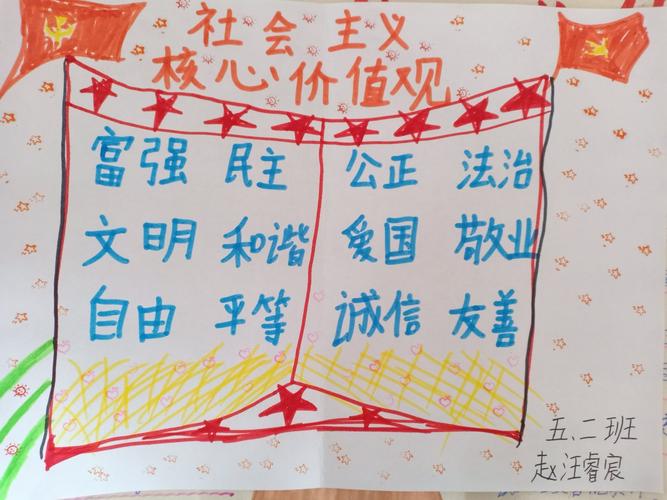 社会主义
核心价值观
富强 民主 公正 法治
文明 和谐 爱国 敬业
自由 平等 诚信 友善
五.二班
赵汪睿宸